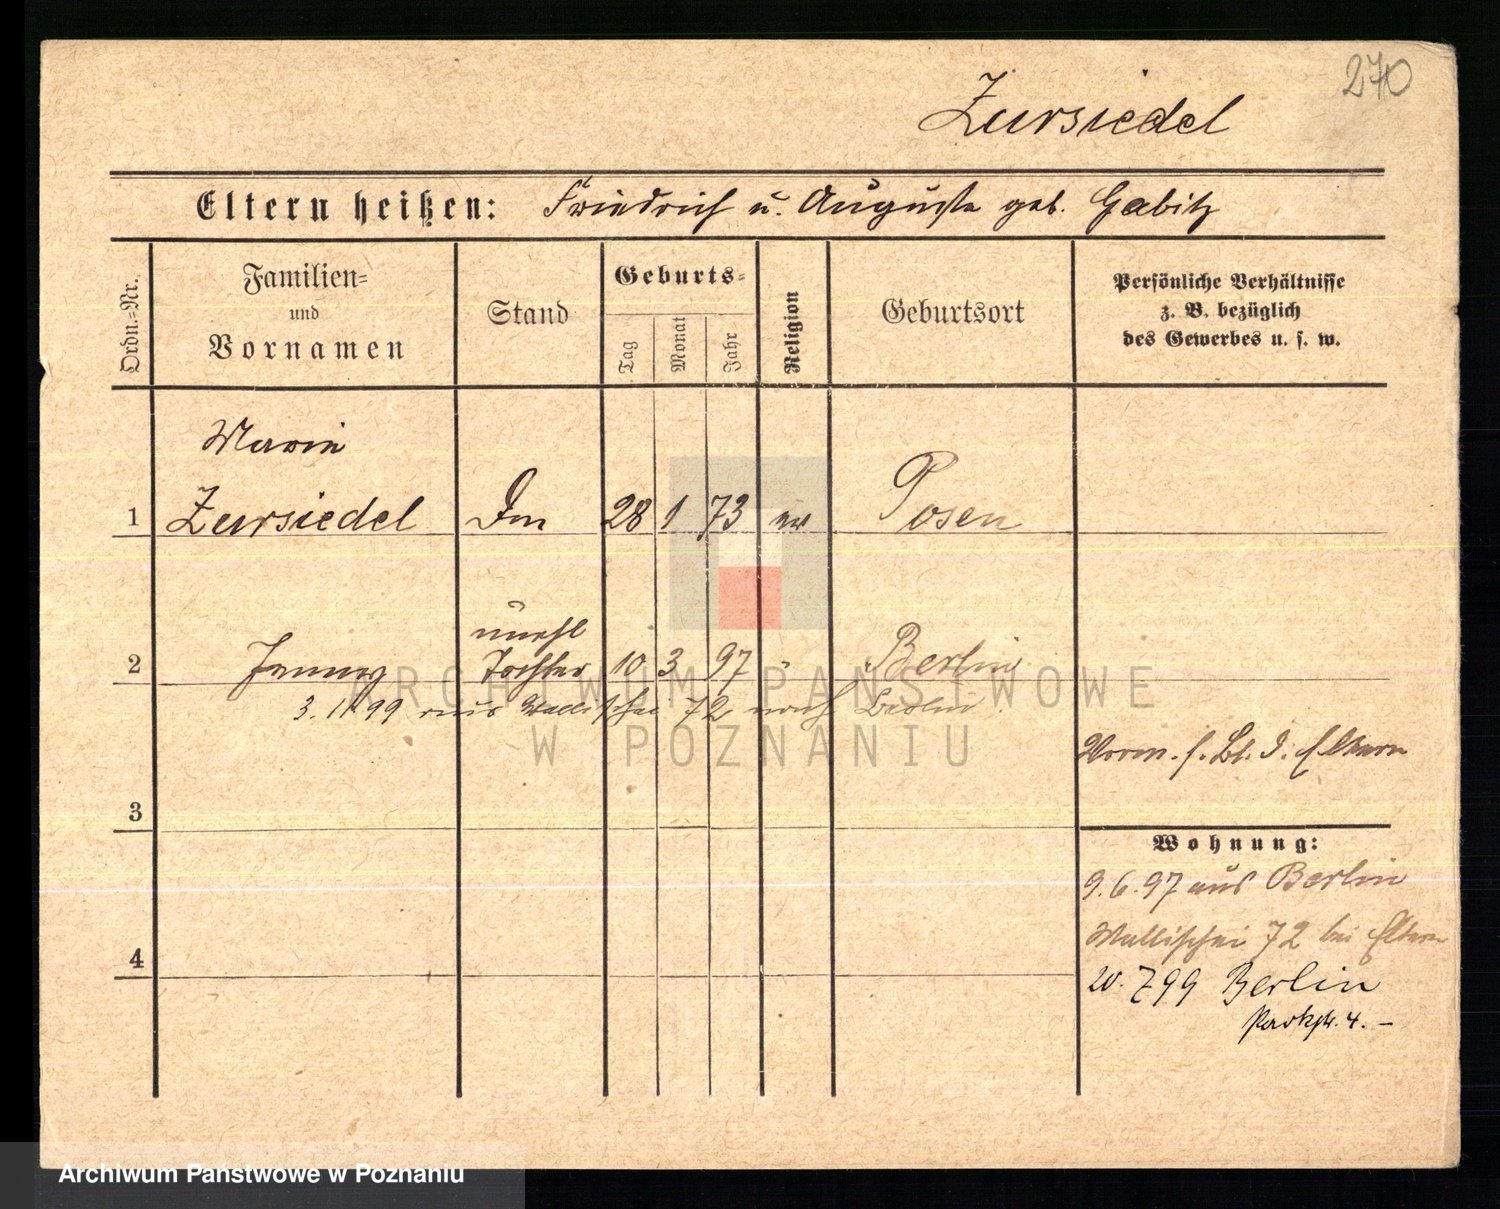 270
Zursiedel
Eltern heißen: Friedrich u. Auguste geb. Gabitz
Ordn.-Nr.
Familien-
und
Vornamen
Stand
Geburts-
Tag
Monat
Jahr
Religion
Geburtsort
Persönliche Verhältnisse
z. B. bezüglich
des Gewerbes u. s. w.
Marie
1 Zursiedel 28 1 73 ev Posen
unehl
2 Tochter 10 3 97 " Berlin
3. 99 aus Wallischei 72 nach Berlin
Verm. s. Bl. d. Eltern
3
Wohnung:
9.6.97 aus Berlin
Wallischei 72 bei Eltern
4
20. 7 99 Berlin
4. –
ARCHIWUM PAŃSTWOWE
W POZNANIU
Archiwum Państwowe w Poznaniu